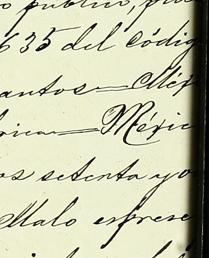 o público, por
635 del códig
antos — Méx
rica — Méxic
os setenta y o
Malo esprese